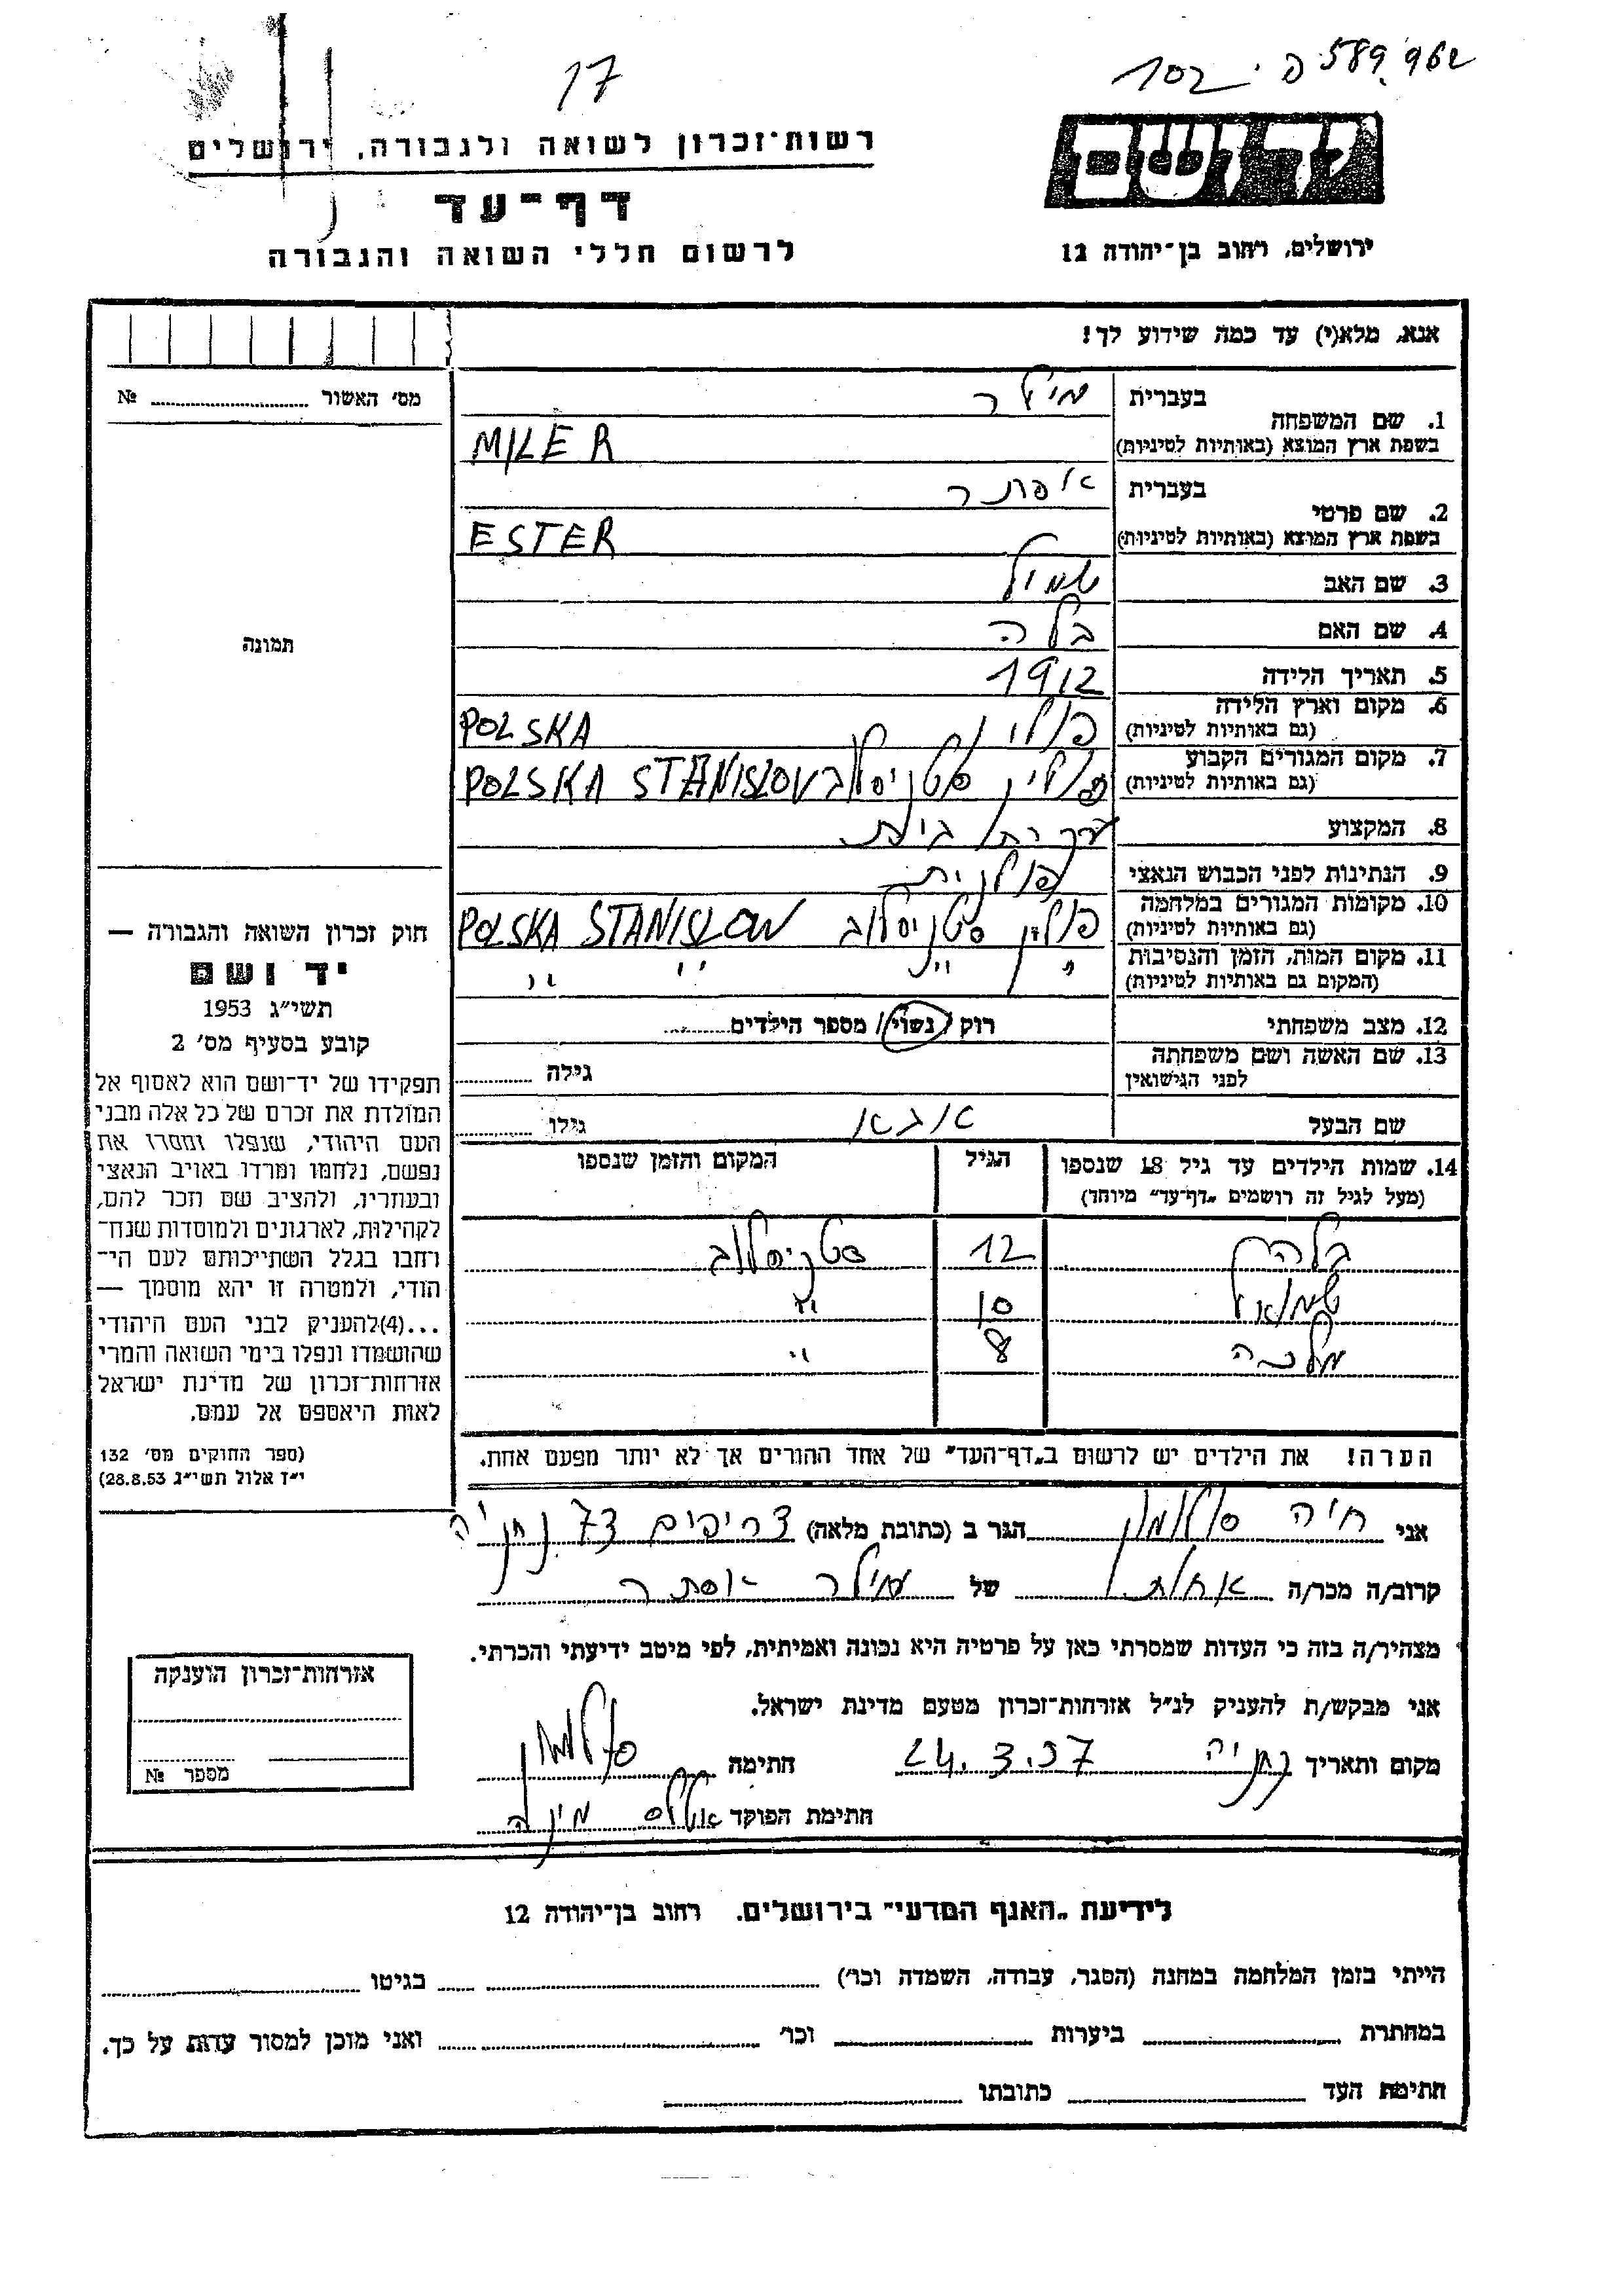 17
רשות־זכרון לשואה ולגבורה, ירושלים
דף־עד
לרשום חללי השואה והגבורה
102
פ 589,962
יד ושם
ירושלים, רחוב בן־יהודה 12
אנא, מלא(י) עד כמה שידוע לך!
מס׳ האשור № ........
1. שם המשפחה בעברית מילר
בשפת ארץ המוצא (באותיות לטיניות) MILER
2. שם פרטי בעברית אסתר
בשפת ארץ המוצא (באותיות לטיניות) ESTER
3. שם האב שמואל
4. שם האם בלה
5. תאריך הלידה 1912
6. מקום וארץ הלידה (גם באותיות לטיניות) פולין POLSKA
7. מקום המגורים הקבוע (גם באותיות לטיניות) פולין סטניסלוב POLSKA STANISLOV
8. המקצוע עקרת בית
9. הנתינות לפני הכבוש הנאצי פולנית
10. מקומות המגורים במלחמה (גם באותיות לטיניות) פולין סטניסלוב POLSKA STANISLOW
11. מקום המות, הזמן והנסיבות (המקום גם באותיות לטיניות) " " " "
12. מצב משפחתי רווק / נשוי / מספר הילדים........
13. שם האשה ושם משפחתה לפני הנישואין גילה ........
שם הבעל גילו ........
14. שמות הילדים עד גיל 18 שנספו (מעל לגיל זה רושמים „דף־עד” מיוחד) הגיל המקום והזמן שנספו
בלה 12 סטניסלוב
שמואל 10 "
מלכה 8 "
הערה! את הילדים יש לרשום ב„דף־העד” של אחד ההורים אך לא יותר מפעם אחת.
תמונה
חוק זכרון השואה והגבורה —
יד ושם
תשי״ג 1953
קובע בסעיף מס׳ 2
תפקידו של יד־ושם הוא לאסוף אל
המולדת את זכרם של כל אלה מבני
העם היהודי, שנפלו ומסרו את
נפשם, נלחמו ומרדו באויב הנאצי
ובעוזריו, ולהציב שם וזכר להם,
לקהילות, לארגונים ולמוסדות שנח־
רבו בגלל השתייכותם לעם הי־
הודי, ולמטרה זו יהא מוסמך —
...(4)להעניק לבני העם היהודי
שהושמדו ונפלו בימי השואה והמרי
אזרחות־זכרון של מדינת ישראל
לאות היאספם אל עמם.
(ספר החוקים מס׳ 132
י״ז אלול תשי״ג 28.8.53)
אני חיה סלומון הגר ב (כתובת מלאה) צריפים 73 נתניה
קרוב/ה מכר/ה אחות של מילר אסתר
מצהיר/ה בזה כי העדות שמסרתי כאן על פרטיה היא נכונה ואמיתית, לפי מיטב ידיעתי והכרתי.
אני מבקש/ת להעניק לנ״ל אזרחות־זכרון מטעם מדינת ישראל.
מקום ותאריך נתניה 24.3.57 חתימה סלומון
חתימת הפוקד
אזרחות־זכרון הוענקה
מספר №
לידיעת „האגף המדעי” בירושלים. רחוב בן־יהודה 12
הייתי בזמן המלחמה במחנה (הסגר, עבודה, השמדה וכו׳) ........ בגיטו ........
במחתרת ........ ביערות ........ וכו׳ ........ ואני מוכן למסור עדות על כך.
חתימת העד ........ כתובתו ........